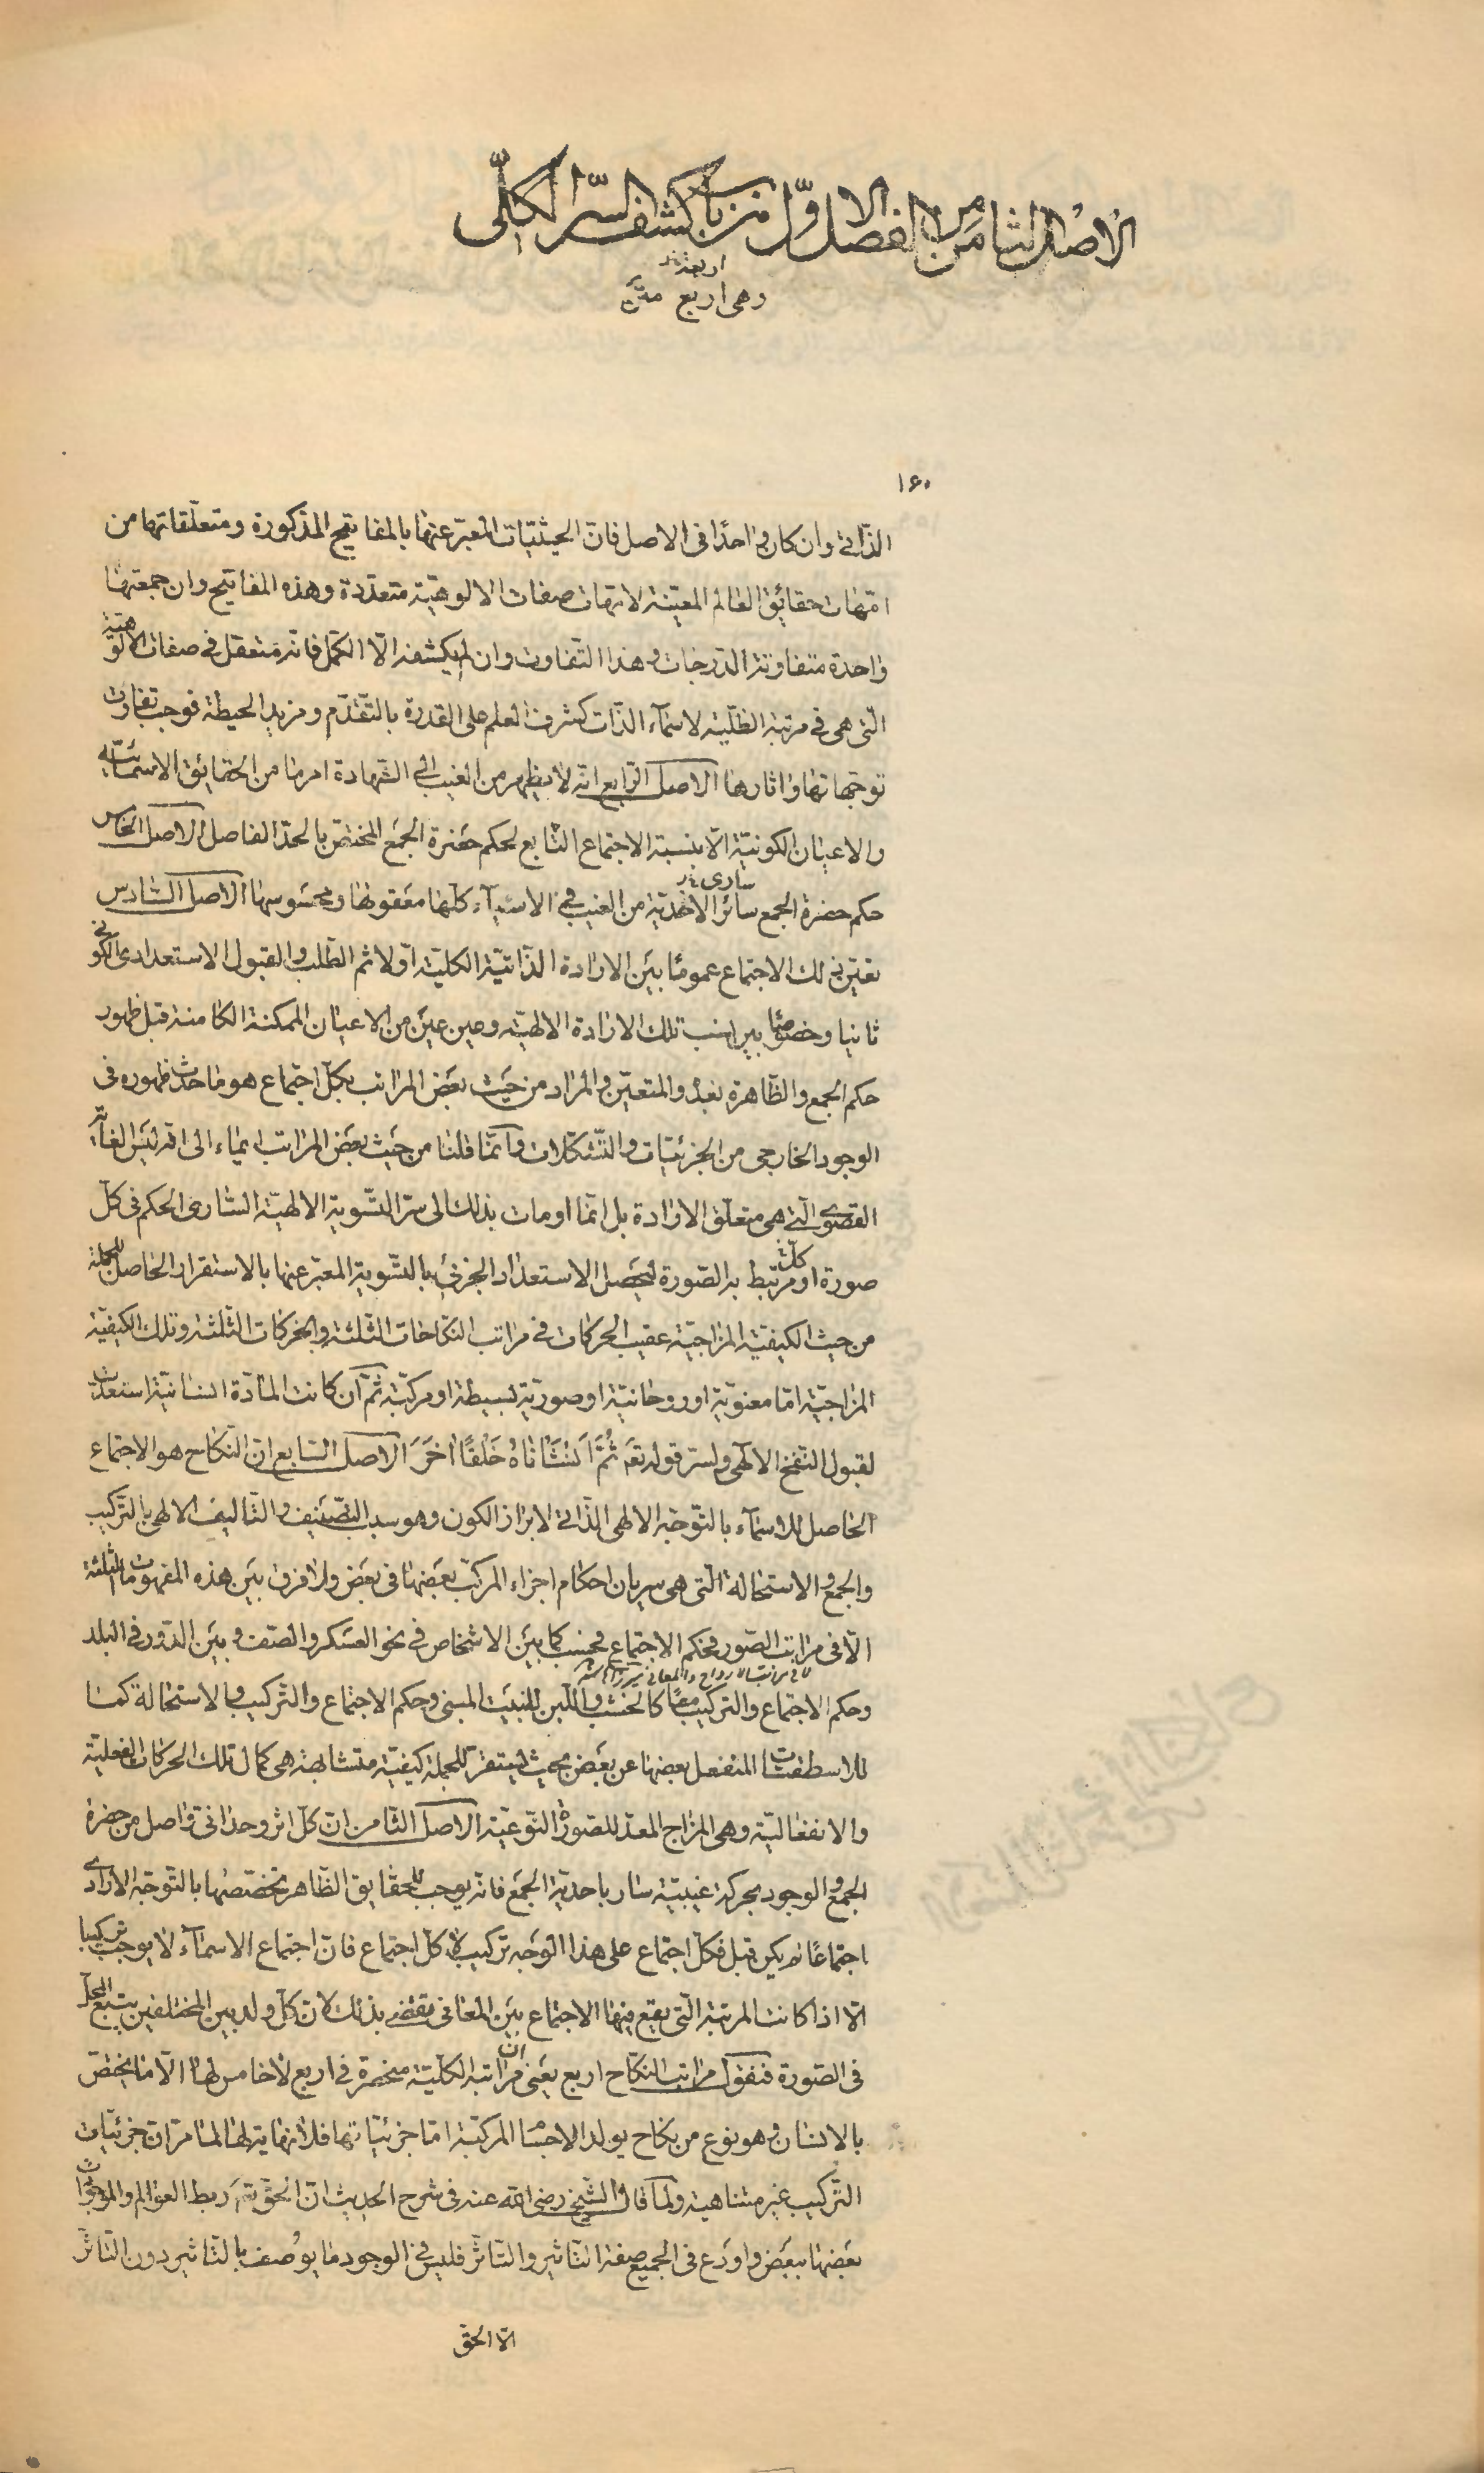 الاصل الثامن من الفصل الاول من باب كشف السر الكلى
اربعة خ‍
وهى اربع
۱۶۰
الذاتى وان كان واحدا فى الاصل فان الحيثيات المعبر عنها بالمفاتيح المذكورة ومتعلقاتها من
امهات حقائق العالم المعينة لامهات صفات الالوهية متعددة وهذه المفاتيح وان جمعتها
واحدة متفاوتة الدرجات وهذا التفاوت وان لم يكشفه الا الكمل فانه متعقل فى صفات الالوهية
التى هى فى مرتبة الظلية لاسماء الذات كشرف العلم على القدرة بالتقدم ومزيد الحيطة فوجب تفاوت
توجهاتها واثارها الاصل الرابع انه لا يظهر من الغيب الى الشهادة امر ما من الحقائق الاسمائيه
والاعيان الكونية الا بنسبة الاجتماع التابع لحكم حضرة الجمع المختص بالحد الفاصل الاصل الخامس
سارى خ‍
حكم حضرة الجمع سائر الاحدية من الغيب فى الاشياء كلها معقولها ومحسوسها الاصل السادس
تعين ذلك الاجتماع عموما بين الارادة الذاتية الكلية اولا ثم الطلب والقبول الاستعدادى الكونى
ثانيا وخصوصا بين نسب تلك الارادة الالهية وعين عين من الاعيان الممكنة الكامنة قبل ظهور
حكم الجمع والظاهرة بعده والمتعين والمراد من حيث بعض المراتب بكل اجتماع هو ما حدث ظهوره فى
الوجود الخارجى من الجزئيات والتشكلات وانما قلنا من حيث بعض المراتب ايماء الى انه ليس الغاية
القصوى التى هى متعلق الارادة بل انما اومات بذلك الى سر التسوية الالهية السارى الحكم فى كل
صورة او كل مرتبط به الصورة ليحصل الاستعداد الجزئى بالتسوية المعبر عنها بالاستقرار الحاصل للجملة
من حيث الكيفية المزاجية عقيب الحركات فى مراتب النكاحات الثلثة والحركات الثلثة وتلك الكيفية
المزاجية اما معنوية او روحانية او صورية بسيطة او مركبة ثم ان كانت المادة انسانية استعدت
لقبول النفخ الالهى ولسر قوله تع‍ ثُمَّ اَنْشَأناهُ خَلْقًا اٰخَرَ الاصل السابع ان النكاح هو الاجتماع
الحاصل للاسماء بالتوجه الالهى الذاتى لابراز الكون وهو سبب التصنيف والتاليف الالهى بالتركيب
والجمع والاستحالة التى هى سريان احكام اجزاء المركب بعضها فى بعض ولا فرق بين هذه المفهومات الثلثة
الا فى مراتب الصور فحكم الاجتماع فحسب كما بين الاشخاص فى نحو العسكر والصف وبين الدور فى البلد
لا فى مراتب الارواح والمعانى
وحكم الاجتماع والتركيب معا كالخشب واللبن للبيت المبنى وحكم الاجتماع والتركيب والاستحالة كما
للاسطقسات المنفعل بعضها عن بعض بحيث يستقر للجملة كيفية متشابهة هى كمال تلك الحركات الفعلية
والانفعالية وهى المزاج المعد للصورة النوعية الاصل الثامن ان كل اثر وحدانى واصل من حضرة
الجمع والوجود بحركة غيبية سار باحدية الجمع فانه يوجب للحقايق الظاهر تخصيصها بالتوجه الارادى
اجتماعا لم يكن قبل فكل اجتماع على هذا الوجه تركيب لا كل اجتماع فان اجتماع الاسماء لا يوجب تركيبا
الا اذا كانت المرتبة التى يقع فيها الاجتماع بين المعانى يقتضى بذلك لان كل ولد بين المختلفين يتبع المحل
فى الصورة فنقول مراتب النكاح اربع يعنى ان مراتبه الكلية منحصرة فى اربع لا خامس لها الا ما يختص
بالانسان وهو نوع من نكاح يولد الاجسام المركبة اما جزئياتها فلا نهاية لها لما مر ان جزئيات
التركيب غير متناهية ولما قال الشيخ رضى الله عنه فى شرح الحديث ان الحق تع‍ ربط العوالم والموجودات
بعضها ببعض واودع فى الجميع صفة التاثير والتاثر فليس فى الوجود ما يوصف بالتاثير دون التاثر
الا الحق